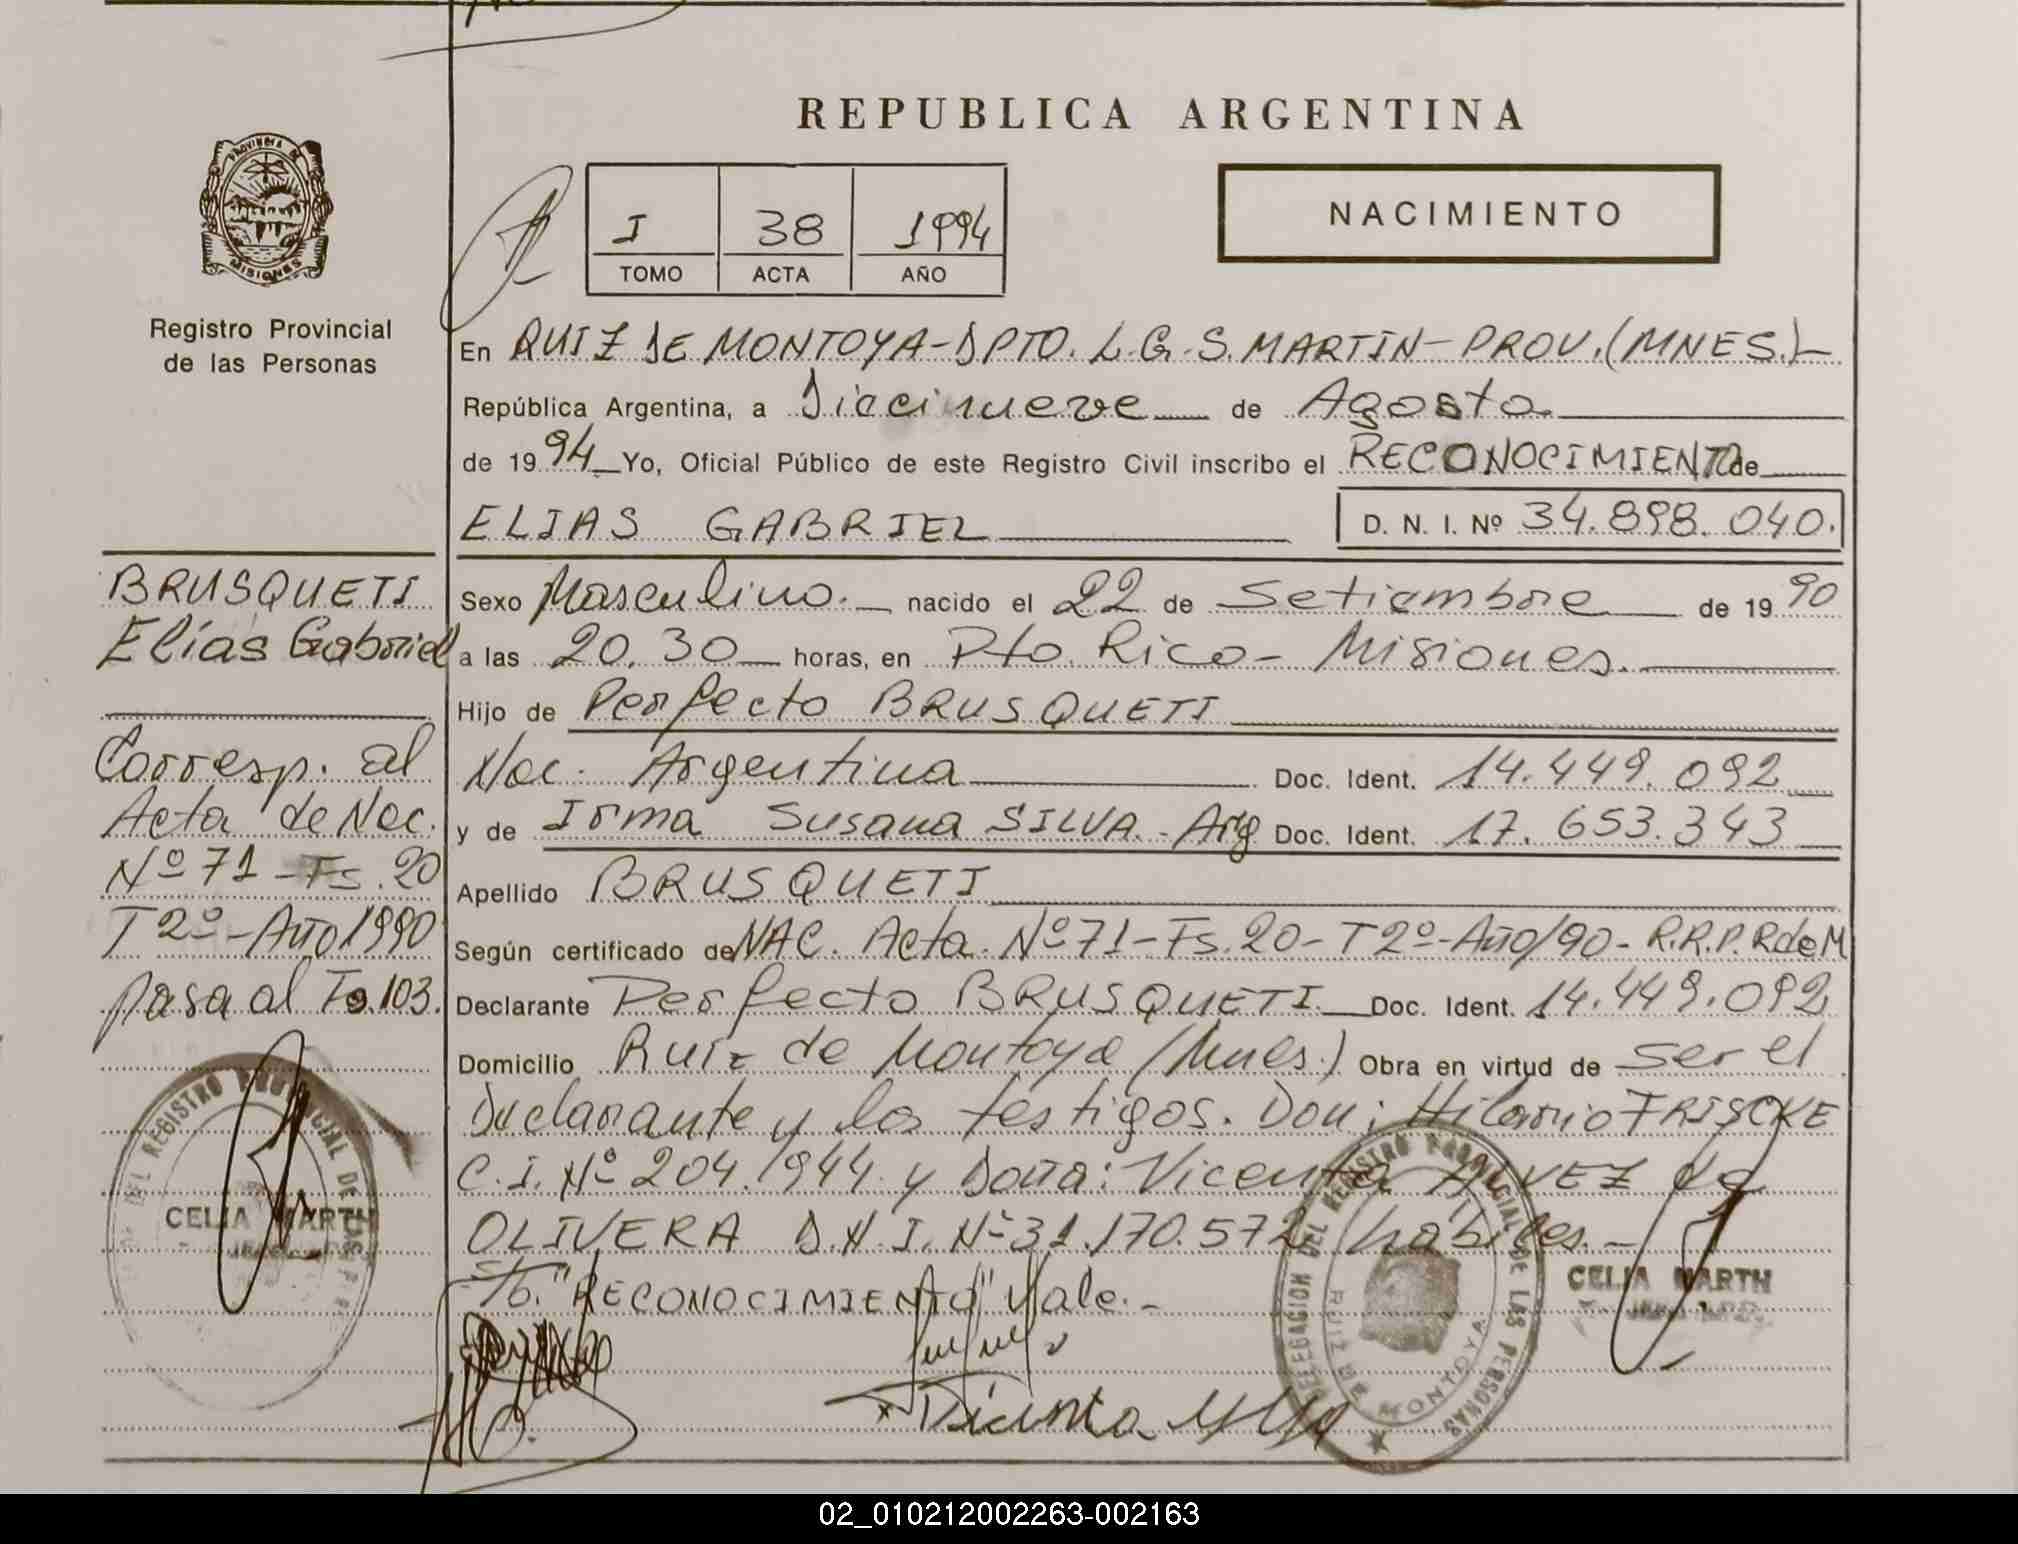 REPUBLICA ARGENTINA
PROVINCIA DE
MISIONES
Registro Provincial
de las Personas
I 38 1994
TOMO ACTA AÑO
NACIMIENTO
En RUIZ DE MONTOYA-DPTO. L.G.S. MARTIN-PROV.(MNES.)-
República Argentina, a Diecinueve de Agosto
de 1994 Yo, Oficial Público de este Registro Civil inscribo el RECONOCIMIENTO de
ELIAS GABRIEL D. N. I. Nº 34.898.040.
BRUSQUETI
Elías Gabriel
Corresp. al
Acta de Nac.
Nº 71 - Fs. 20
T 2º - Año 1990
pasa al Fo. 103.
Sexo Masculino. nacido el 22 de Setiembre de 1990
a las 20.30 horas, en Pto. Rico - Misiones.
Hijo de Perfecto BRUSQUETI
Nac. Argentina Doc. Ident. 14.449.092
y de Irma Susana SILVA.- Arg Doc. Ident. 17.653.343
Apellido BRUSQUETI
Según certificado de NAC. Acta. Nº 71-Fs. 20-T 2º-Año/90-R.R.P. R de M
Declarante Perfecto BRUSQUETI Doc. Ident. 14.449.092
Domicilio Ruiz de Montoya (Mnes.) Obra en virtud de ser el
Declarante y los testigos. Don: Hilario FRISCKE
C.I. Nº 204.944 y Doña: Vicenta ALVEZ de
OLIVERA D.N.I. Nº 31.170.572 hábiles.-
S/b. "RECONOCIMIENTO" Vale.-
DEL REGISTRO PROVINCIAL DE LAS PER
CELIA MARTH
DELEGACION DEL REGISTRO PROVINCIAL DE LAS PERSONAS
RUIZ DE MONTOYA
CELIA MARTH
02_010212002263-002163